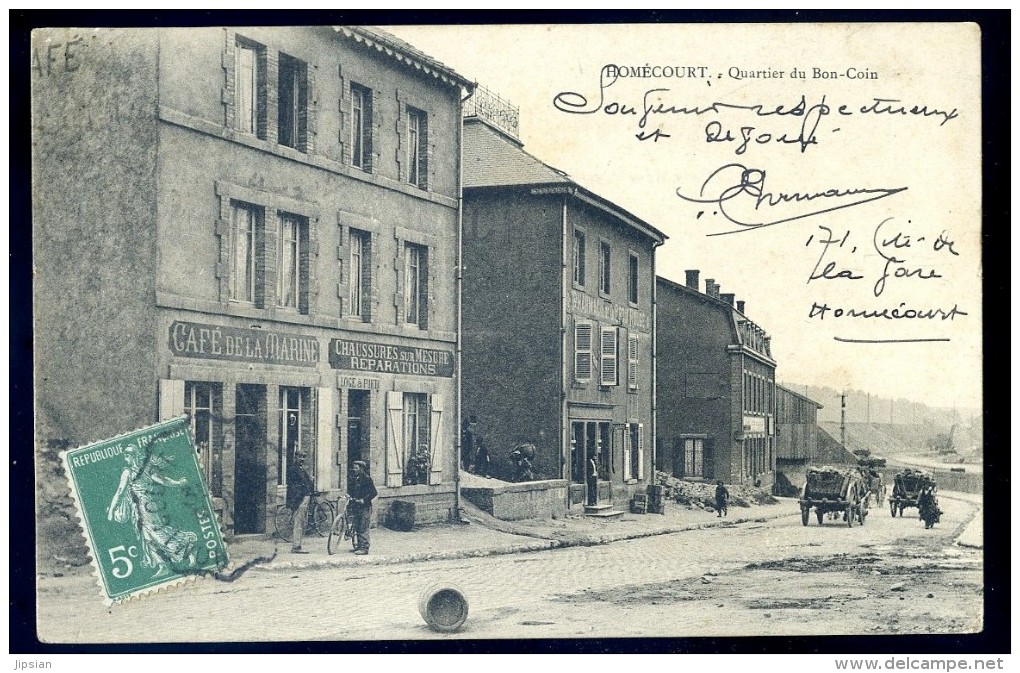 CAFÉ
HOMÉCOURT. - Quartier du Bon-Coin
Souvenir respectueux
et dévoué
171, Cité de
la Gare
Homécourt
CAFÉ DE LA MARINE
CHAUSSURES SUR MESURE
RÉPARATIONS
LOGE À PIED
REPUBLIQUE FRANÇAISE
5c
POSTES
Jipsian
www.delcampe.net